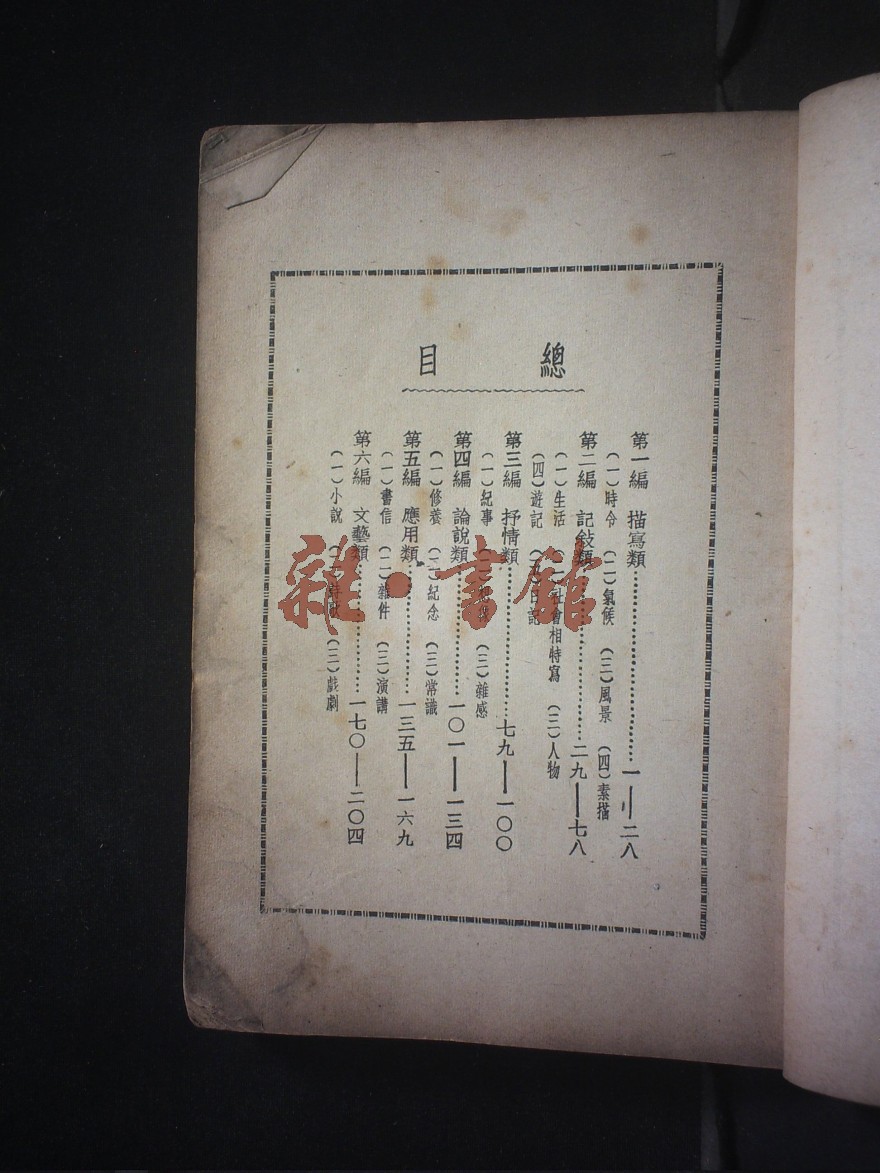 總目
第一編 描寫類……一——二八
(一)時令 (二)氣候 (三)風景 (四)素描
第二編 記敍類……二九——七八
(一)生活 (二)社會相特寫 (三)人物
(四)遊記 (五)日記
第三編 抒情類……七九——一〇〇
(一)紀事 (三)雜感
第四編 論說類……一〇一——一三四
(一)修養 (二)紀念 (三)常識
第五編 應用類……一三五——一六九
(一)書信 (二)雜件 (三)演講
第六編 文藝類……一七〇——二〇四
(一)小說 (二)詩歌 (三)戲劇
雜·書館